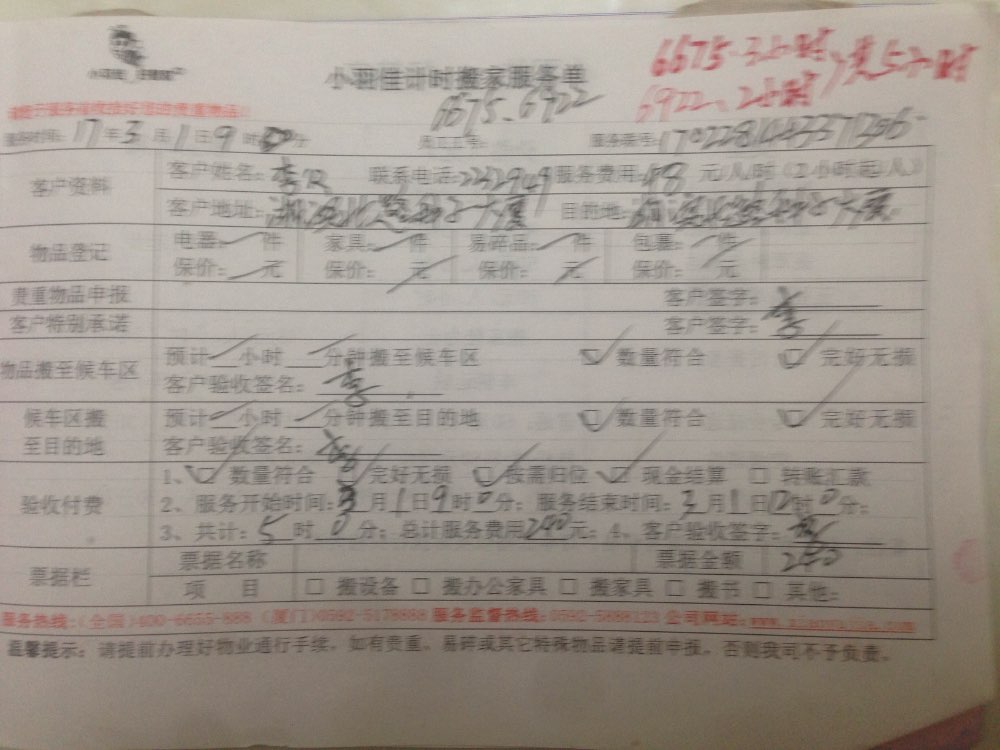 小羽佳计时搬家服务单
6675-3小时
6922、2小时 共5小时
6675、6922
服务时间：17年3月1日9时00分 员工工号： 服务票号：
客户资料
客户姓名：李 联系电话：2232949 服务费用：48元/人/时（2小时起/人）
客户地址： 目的地：
物品登记
电器： 件 家具： 件 易碎品： 件 包裹： 件
保价： 元 保价： 元 保价： 元 保价： 元
贵重物品申报 客户签字：李
客户特别承诺 客户签字：
物品搬至候车区
预计 小时 分钟搬至候车区 数量符合 完好无损
客户验收签名：李
候车区搬至目的地
预计 小时 分钟搬至目的地 数量符合 完好无损
客户验收签名：
验收付费
1、 数量符合 完好无损 按需归位 现金结算 转账汇款
2、服务开始时间：3月1日9时0分；服务结束时间：3月1日12时0分；
3、共计：5时0分；总计服务费用240元；4、客户验收签字：
票据栏
票据名称 票据金额 240
项 目 搬设备 搬办公家具 搬家具 搬书 其他：
服务热线：（全国）400-6655-888（厦门）0592-5178888 服务监督热线：0592-5888123 公司网站：www.xiaoyujia.com
温馨提示：请提前办理好物业通行手续，如有贵重、易碎或其它特殊物品请提前申报，否则我司不予负责。